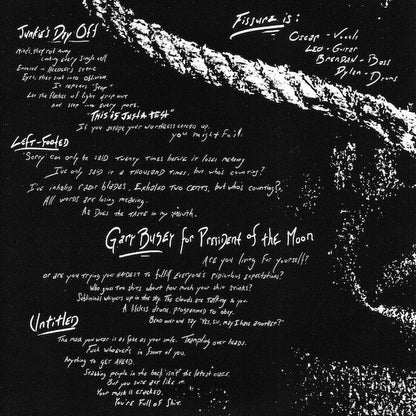 Junkie's Day Off
Fissure is:
Oscar - Vocals
Leo - Guitar
Brendan - Bass
Dylan - Drums
Minds, they rot away
eating every single cell
Encased in
Eyes, they sink into oblivion,
It repeats "Stop"
Let the flashes of light drip out
and seep into every pore.
"THIS IS JUST A TEST"
If you your worthless carcass up.
you might fail.
Left-Footed
"Sorry can only be said twenty times before it loses meaning
I've only said it a thousand times, but who's counting?
I've inhaled razor blades. Exhaled two cents, but who's counting?
All words are losing meaning.
As Does the taste in my mouth.
Gary Busey for President of the Moon
Are you living for yourself?
or are you trying your hardest to fulfill everyone's ridiculous expectations?
Who gives two shits about how much your shirt stinks?
Subliminal whispers up in the sky. The clouds are talking to you
A useless drone, programmed to obey.
Bend over and say "Yes, sir, may I have another?"
Untitled
The mask you wear is as fake as your smile. Trampling over heads.
Fuck whoever's in front of you.
Anything to get AHEAD.
Stabbing people in the back isn't the latest craze.
But you sure act like it.
Your mask is cracked.
You're full of shit.